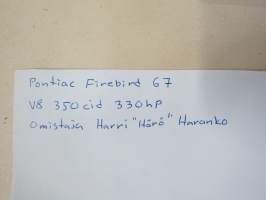 Pontiac Firebird 67
V8 350 cid 330hP
Omistaja Harri "Härö" Haranko